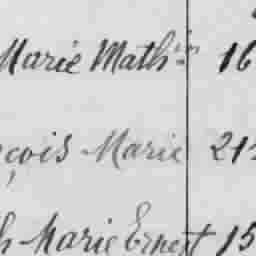 Marie Mathin 16
çois Marie 21
h Marie Ernest 15